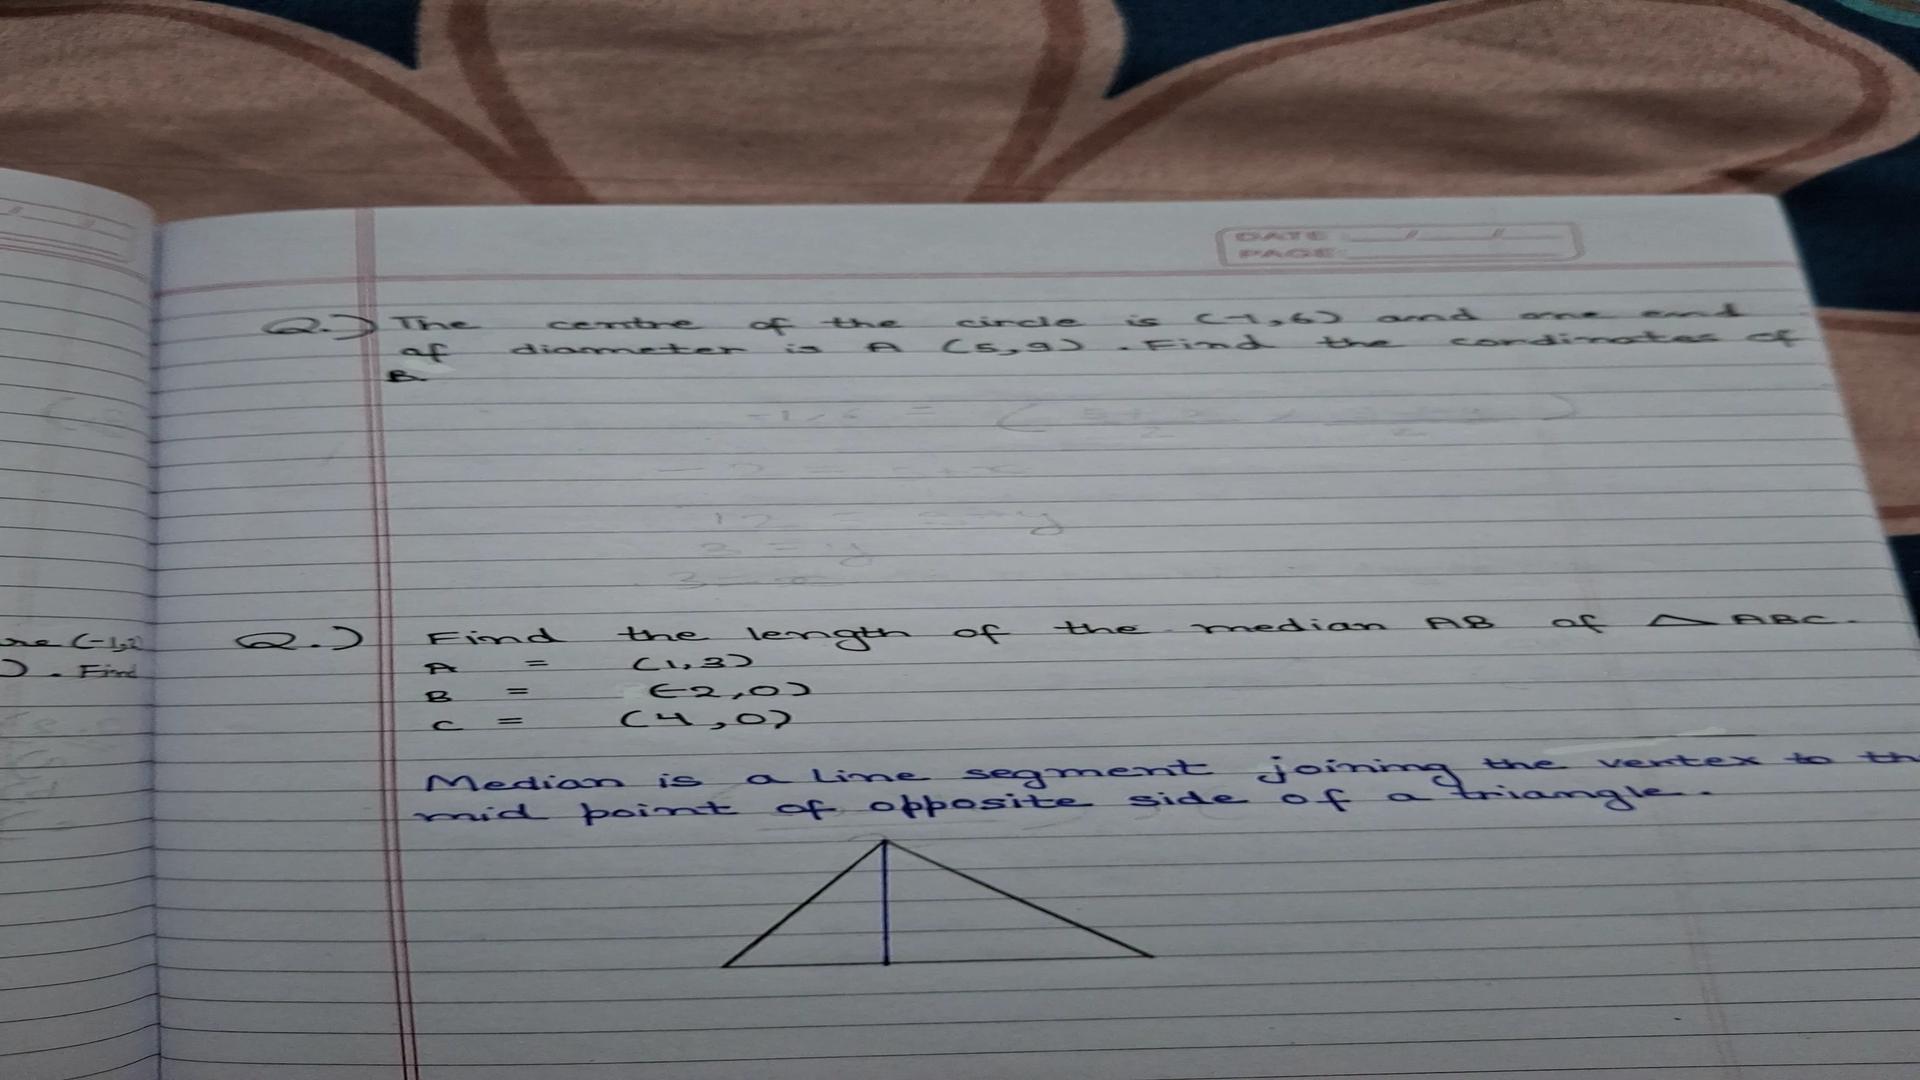 DATE
PAGE
Q.) The centre of the circle is (-1,6) and one end
of diameter is A (5,9). Find the cordinates of
B
12 = 9+y
3 = y
re (-1,2)
). Find
Q.) Find the length of the median AB of △ ABC.
A = (1,3)
B = (-2,0)
C = (4,0)
Median is a line segment joining the vertex to th
mid point of opposite side of a triangle.